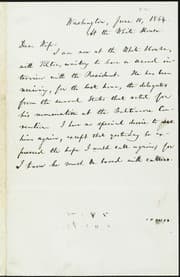 Washington, June 10, 1864.
At the White House
Dear Wife,
I am now at the White House,
with Tilton, waiting to have a second in-
terview with the President. He has been
receiving, for the last hour, the delegates
from the several States that voted for
his renomination at the Baltimore Con-
vention. I have no special desire to see
him again, except that yesterday he ex-
pressed the hope I would call again; for
I know he must be bored with callers.